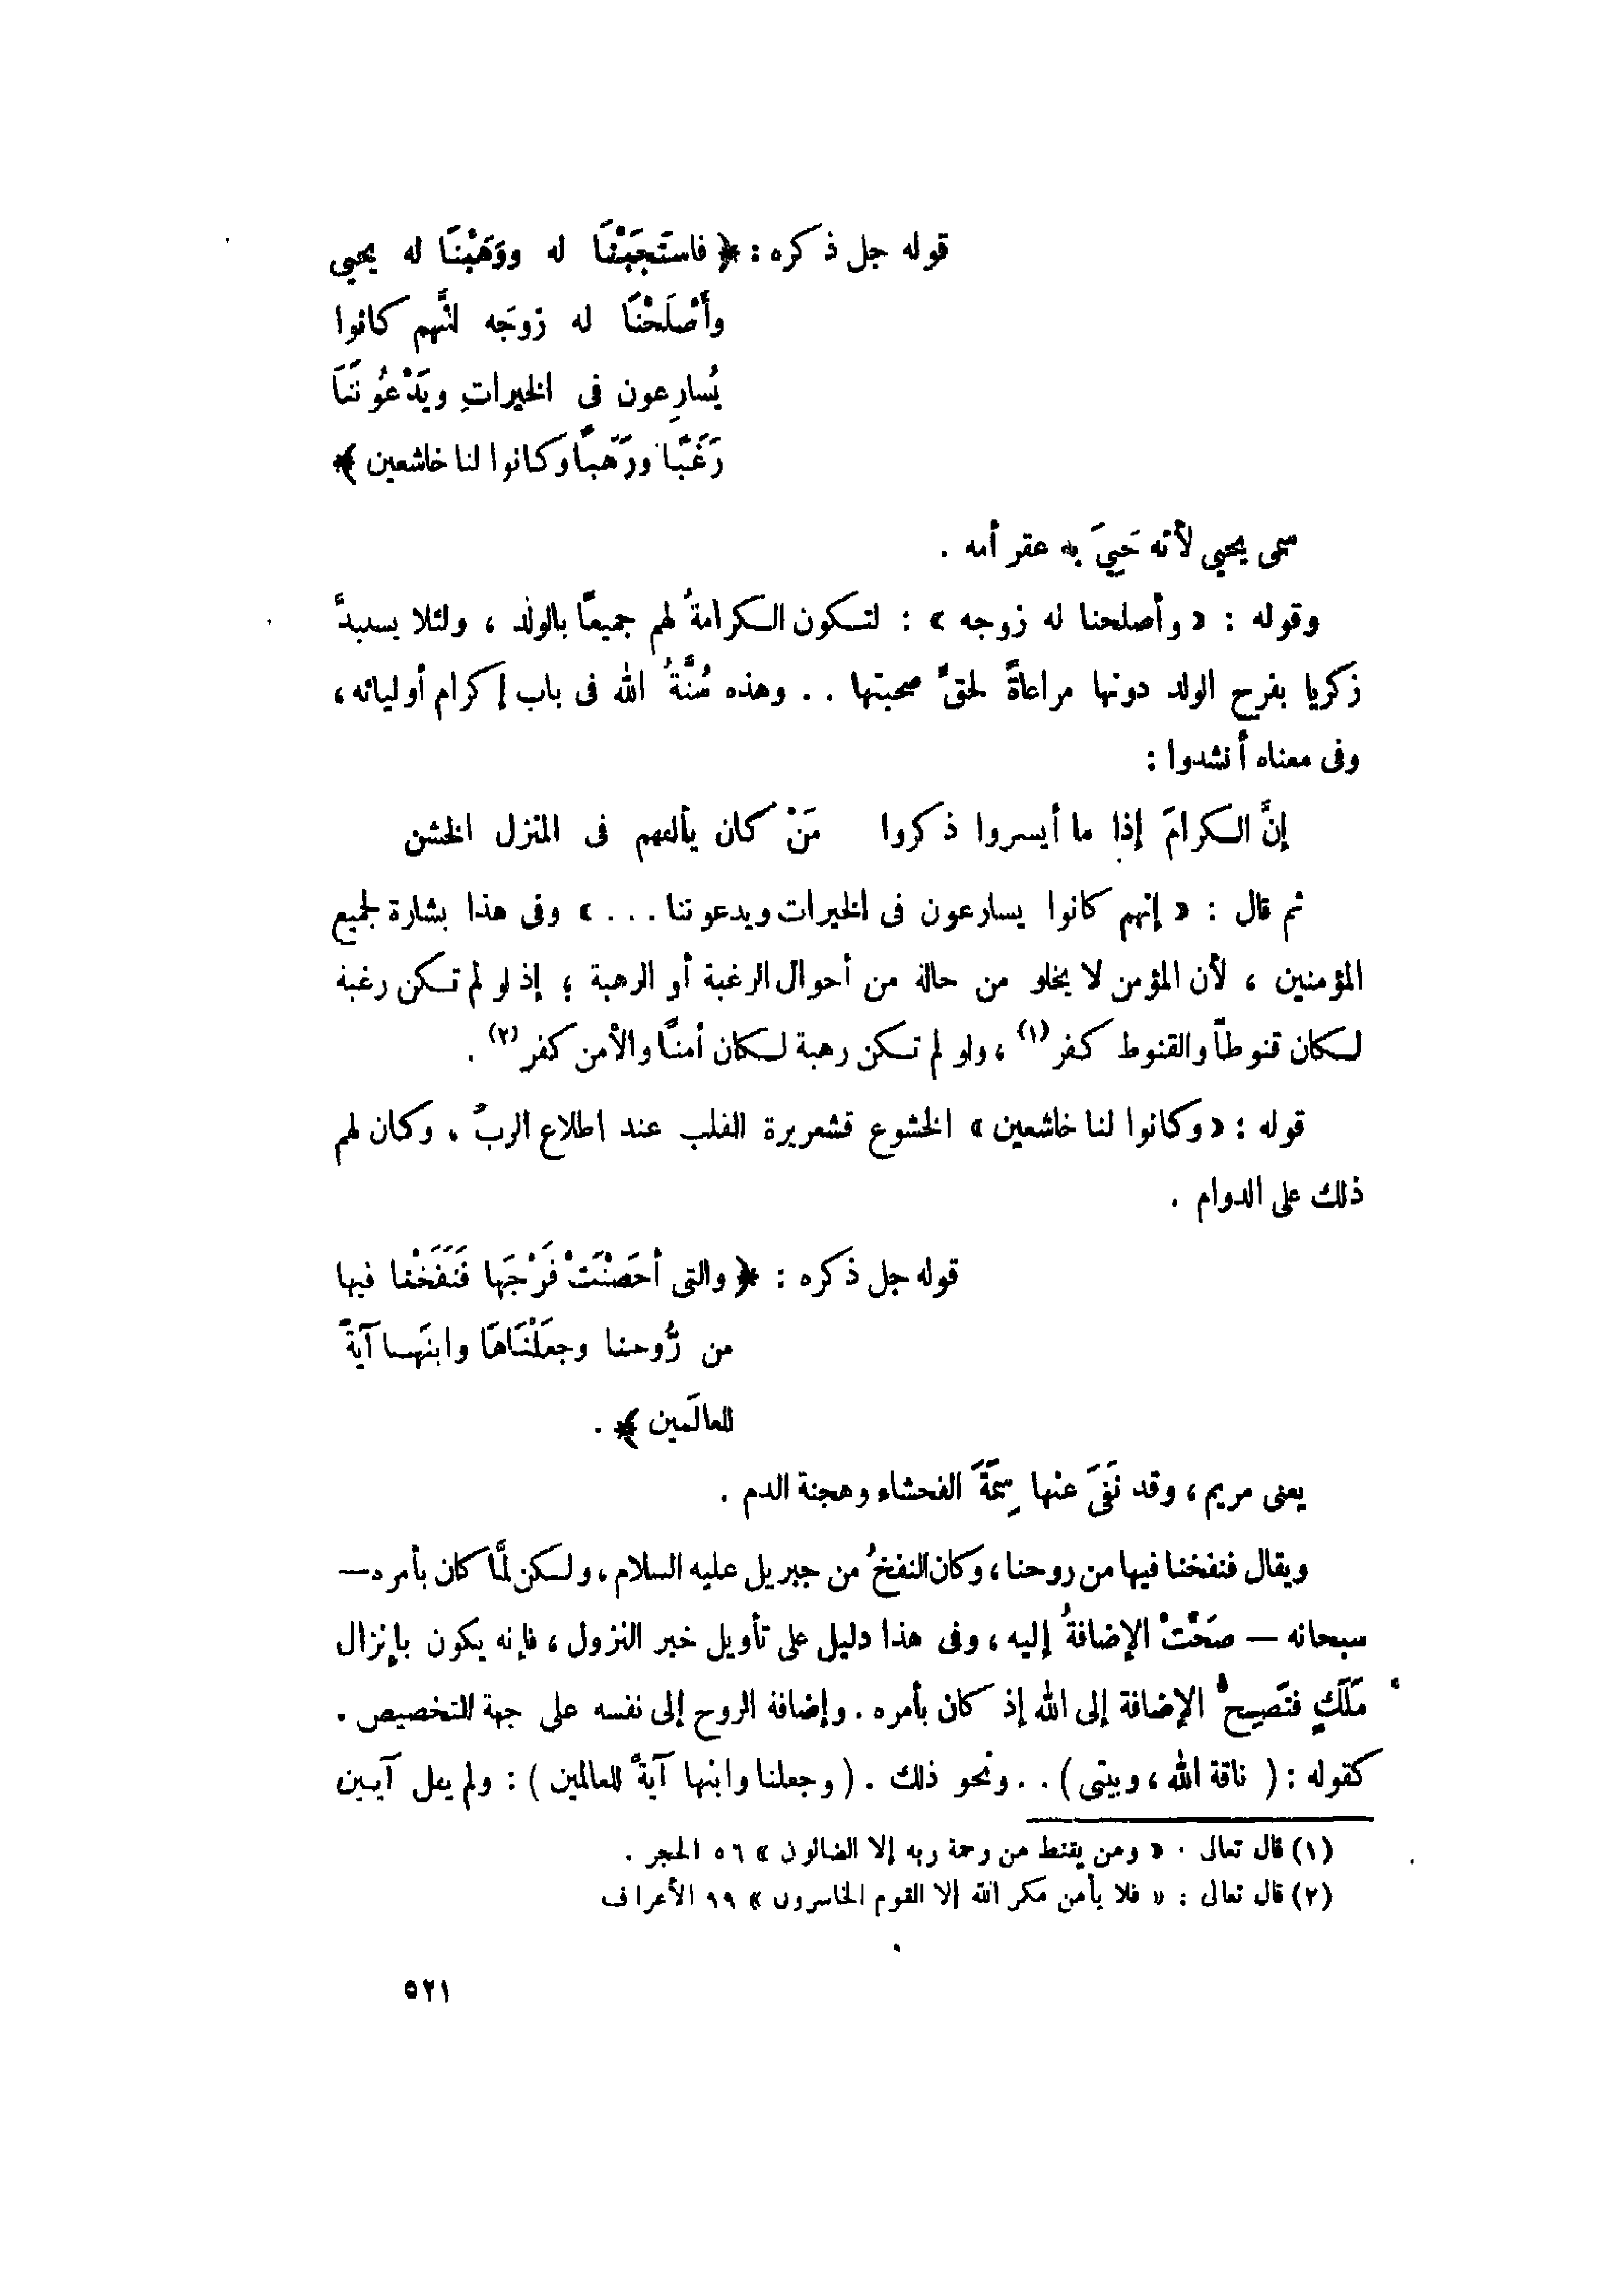 قوله جل ذكره : ﴿ فاستَجَبْنَا له ووَهَبْنَا له يحيى
وأَصْلَحْنَا له زوجَه إنَّهم كانوا
يُسارِعون فى الخيراتِ ويَدْعُونَنَا
رَغَبًا ورَهَبًا وكانوا لنا خاشعين ﴾
سمى يحيى لأنه حَيِيَ به عقر أمه .
وقوله : « وأصلحنا له زوجه » : لتكون الكرامةُ لهم جميعًا بالولد ، ولئلا يستبدَّ
زكريا بفرح الولد دونها مراعاةً لحقِّ صحبتها . . وهذه سُنَّةُ الله فى باب إكرام أوليائه ،
وفى معناه أنشدوا :
إنَّ الكرامَ إذا ما أيسروا ذكروا مَنْ كان يألفهم فى المنزل الخشن
ثم قال : « إنهم كانوا يسارعون فى الخيرات ويدعوننا . . . » وفى هذا بشارة لجميع
المؤمنين ، لأن المؤمن لا يخلو من حالة من أحوال الرغبة أو الرهبة ؛ إذ لو لم تكن رغبة
لكان قنوطاً والقنوط كفر (١) ، ولو لم تكن رهبة لكان أمنًا والأمن كفر (٢) .
قوله : « وكانوا لنا خاشعين » الخشوع قشعريرة القلب عند اطلاع الربِّ ، وكان لهم
ذلك على الدوام .
قوله جل ذكره : ﴿ والتى أحصَنَتْ فَرْجَها فَنَفَخْنا فيها
من رُّوحنا وجعَلْنَاهَا وابنَها آيةً
للعالَمين ﴾ .
يعنى مريم ، وقد نَفَى عنها سِمَةَ الفحشاء وهجنة الذم .
ويقال فنفخنا فيها من روحنا ، وكان النفخُ من جبريل عليه السلام ، ولكن لمَّا كان بأمره —
سبحانه — صَحَّتْ الإضافةُ إليه ، وفى هذا دليل على تأويل خبر النزول ، فإنه يكون بإنزال
مَلَكٍ فتَصِحُّ الإضافة إلى الله إذ كان بأمره . وإضافة الروح إلى نفسه على جهة التخصيص .
كقوله : ( ناقة الله ، وبيتى ) . . ونحو ذلك . ( وجعلنا وابنها آيةً للعالمين ) : ولم يقل آيتين
(١) قال تعالى . « ومن يقنط من رحمة ربه إلا الضالون » ٥٦ الحجر .
(٢) قال تعالى : « فلا يأمن مكر الله إلا القوم الخاسرون » ٩٩ الأعراف
٥٢١